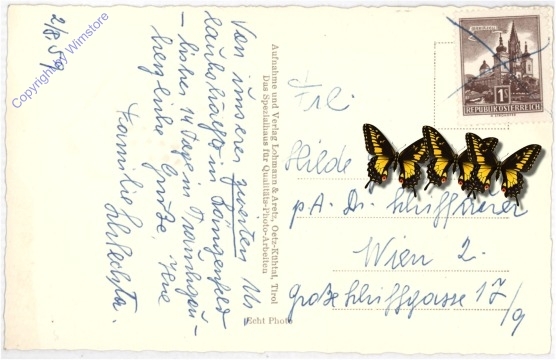 2/8. 59
Von unserer zweiten Ur-
laubsetappe in Längenfeld
– bisher 14 Tage in
herzliche Grüße, Ihre
Familie
Aufnahme und Verlag Lohmann & Aretz, Oetz-Kühtai, Tirol
Das Spezialhaus für Qualitäts-Photo-Arbeiten
Echt Photo
MARIAZELL
1S
REPUBLIK ÖSTERREICH
Frl.
Hilde
p. A. Dr.
Wien 2.
Große Schiffgasse 17/9
Copyright by Wimstore